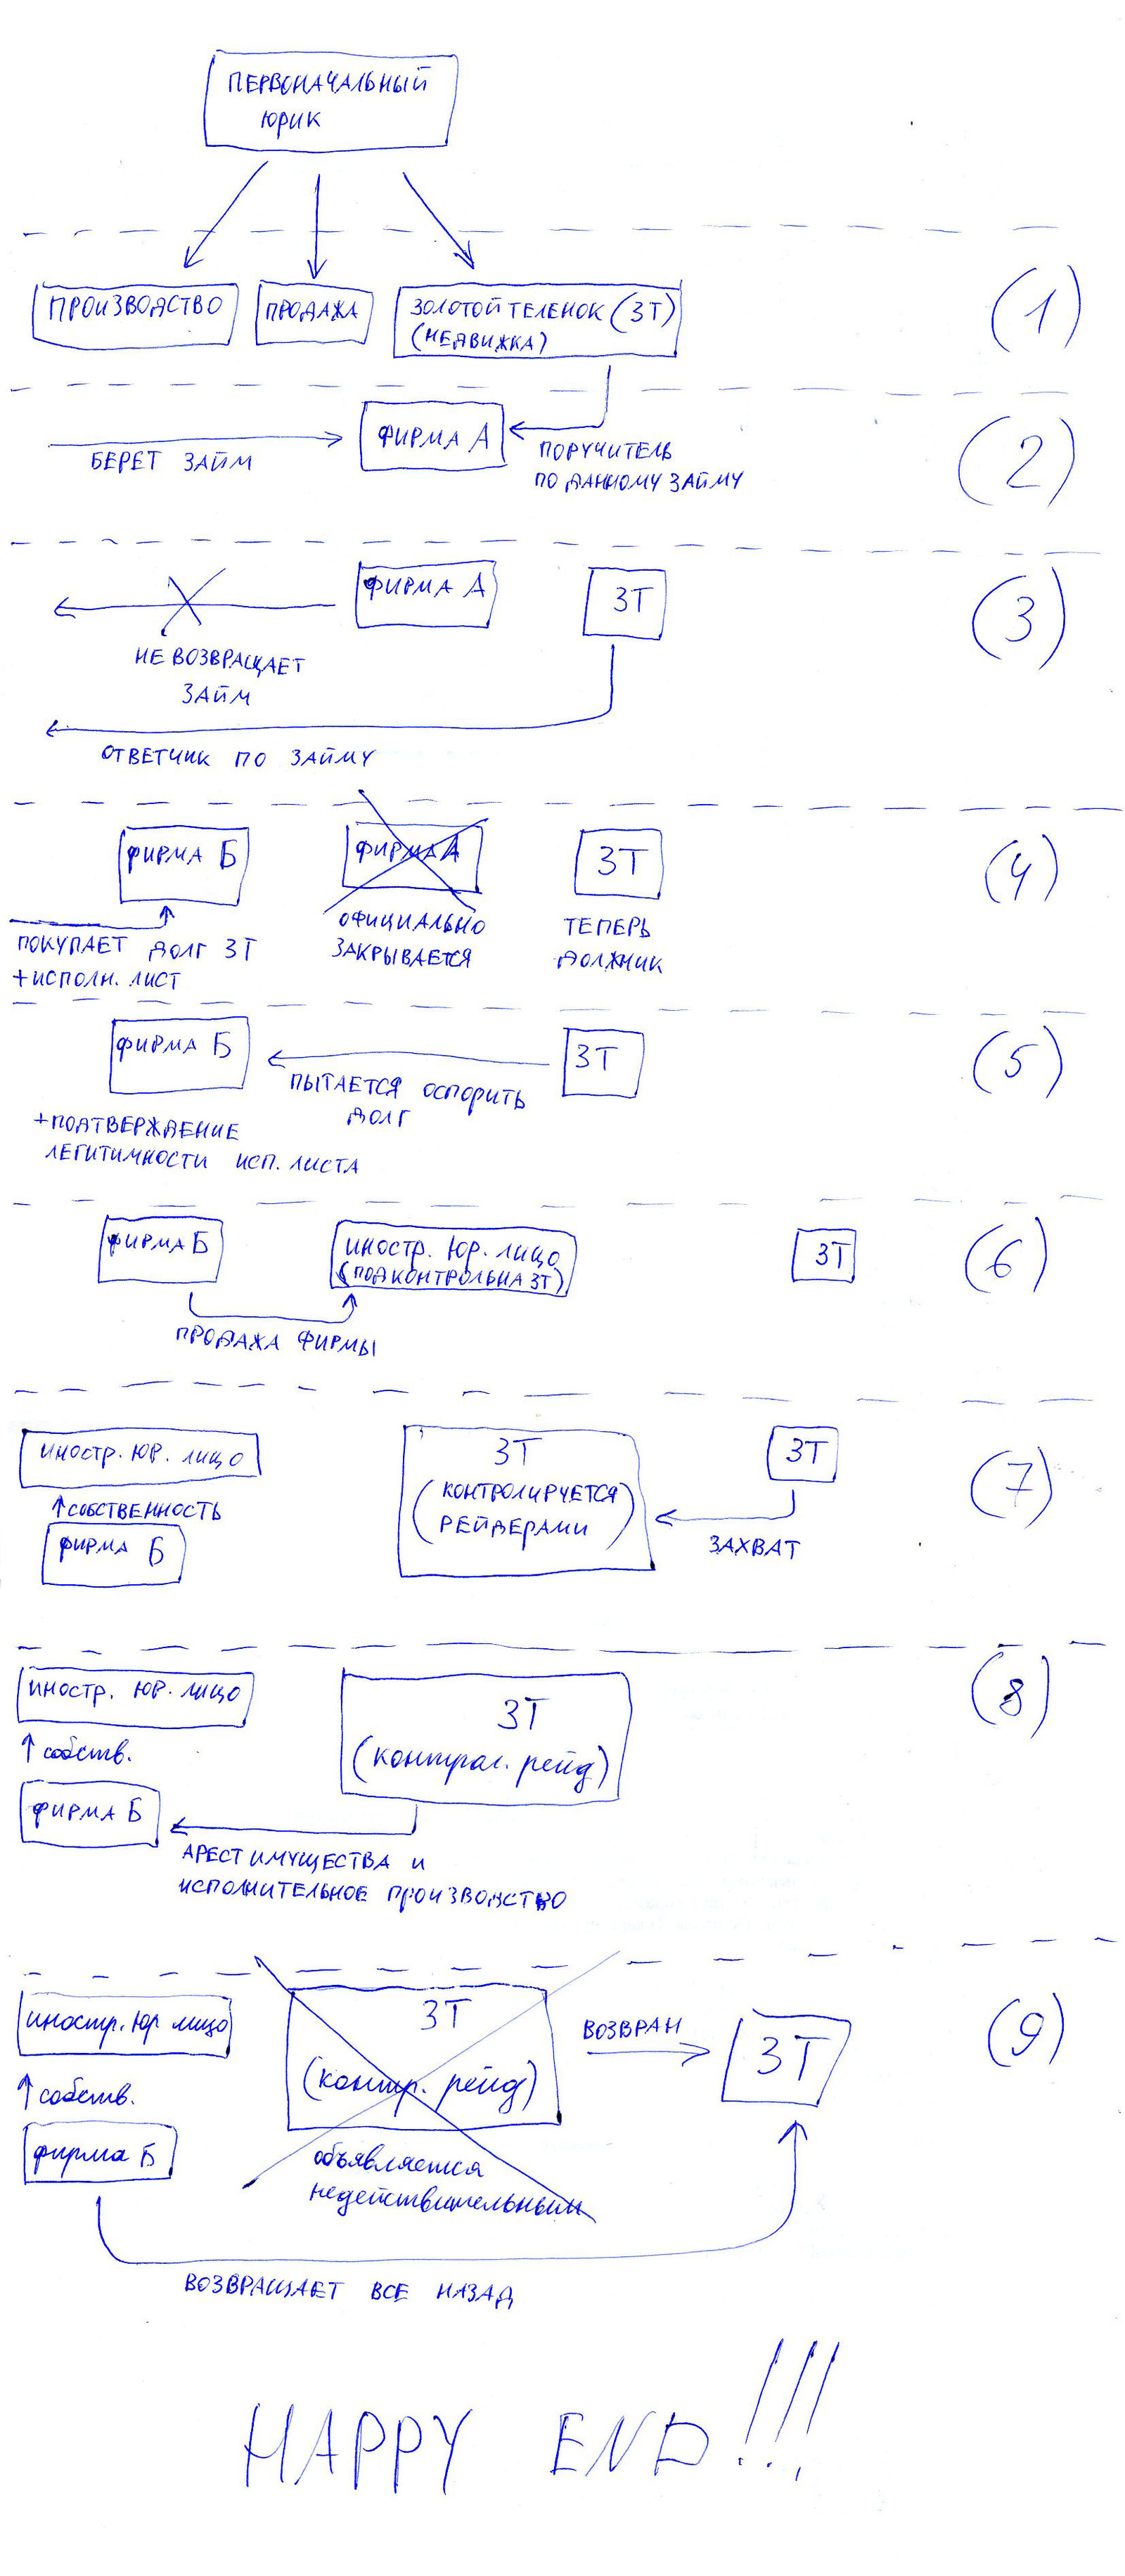 ПЕРВОНАЧАЛЬНЫЙ
ЮРИК
ПРОИЗВОДСТВО
ПРОДАЖА
ЗОЛОТОЙ ТЕЛЕНОК (ЗТ)
(НЕДВИЖКА)
(1)
БЕРЕТ ЗАЙМ
ФИРМА А
ПОРУЧИТЕЛЬ
ПО ДАННОМУ ЗАЙМУ
(2)
ФИРМА А
ЗТ
(3)
НЕ ВОЗВРАЩАЕТ
ЗАЙМ
ОТВЕТЧИК ПО ЗАЙМУ
ФИРМА Б
ФИРМА А
ЗТ
(4)
ПОКУПАЕТ ДОЛГ ЗТ
+ИСПОЛН. ЛИСТ
ОФИЦИАЛЬНО
ЗАКРЫВАЕТСЯ
ТЕПЕРЬ
ДОЛЖНИК
ФИРМА Б
ЗТ
(5)
ПЫТАЕТСЯ ОСПОРИТЬ
ДОЛГ
+ПОДТВЕРЖДЕНИЕ
ЛЕГИТИМНОСТИ ИСП. ЛИСТА
ФИРМА Б
ИНОСТР. ЮР. ЛИЦО
(ПОДКОНТРОЛЬНА ЗТ)
ЗТ
(6)
ПРОДАЖА ФИРМЫ
ИНОСТР. ЮР. ЛИЦО
СОБСТВЕННОСТЬ
ФИРМА Б
ЗТ
(КОНТРОЛИРУЕТСЯ
РЕЙДЕРАМИ)
ЗТ
ЗАХВАТ
(7)
ИНОСТР. ЮР. ЛИЦО
собств.
ФИРМА Б
ЗТ
(контрол. рейд)
(8)
АРЕСТ ИМУЩЕСТВА И
ИСПОЛНИТЕЛЬНОЕ ПРОИЗВОДСТВО
иностр. юр лицо
собств.
фирма Б
ЗТ
(контр. рейд)
объявляется
недействительным
ВОЗВРАН
ЗТ
(9)
ВОЗВРАЩАЕТ ВСЕ НАЗАД
HAPPY END!!!